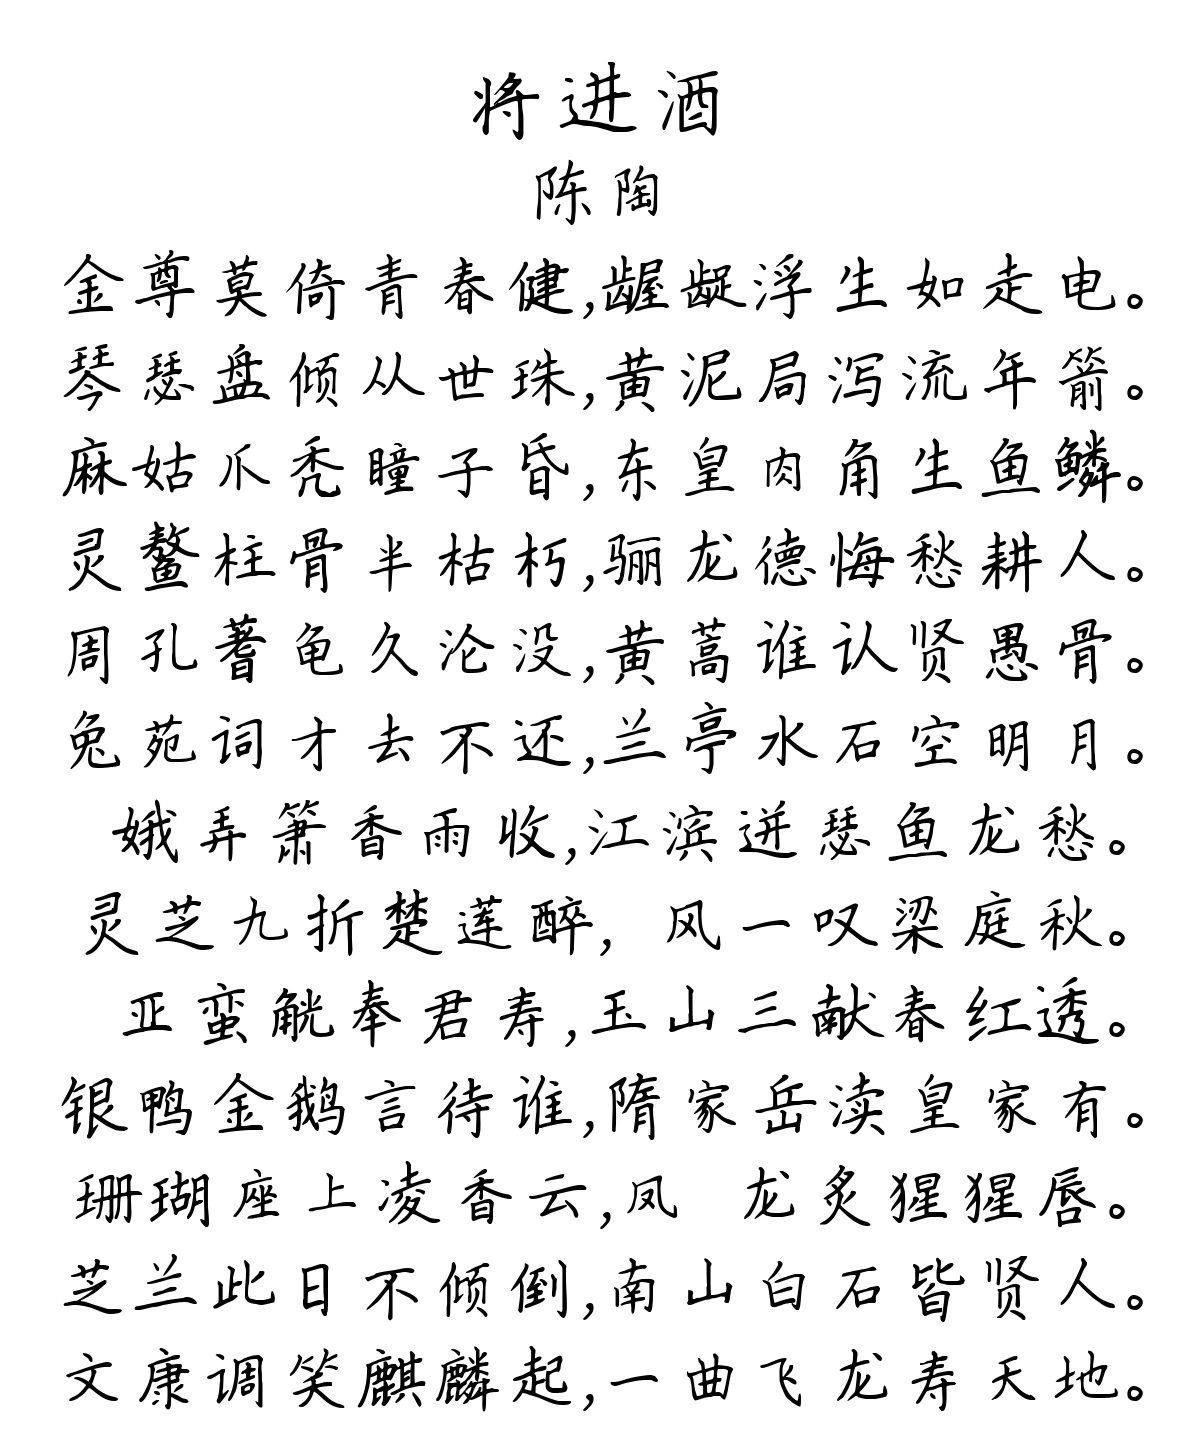 将进酒
陈陶
金尊莫倚青春健,龌龊浮生如走电。
琴瑟盘倾从世珠,黄泥局泻流年箭。
麻姑爪秃瞳子昏,东皇肉角生鱼鳞。
灵鳌柱骨半枯朽,骊龙德悔愁耕人。
周孔蓍龟久沦没,黄蒿谁认贤愚骨。
兔苑词才去不还,兰亭水石空明月。
娥弄箫香雨收,江滨迸瑟鱼龙愁。
灵芝九折楚莲醉, 风一叹梁庭秋。
亚蛮觥奉君寿,玉山三献春红透。
银鸭金鹅言待谁,隋家岳渎皇家有。
珊瑚座上凌香云,凤 龙炙猩猩唇。
芝兰此日不倾倒,南山白石皆贤人。
文康调笑麒麟起,一曲飞龙寿天地。